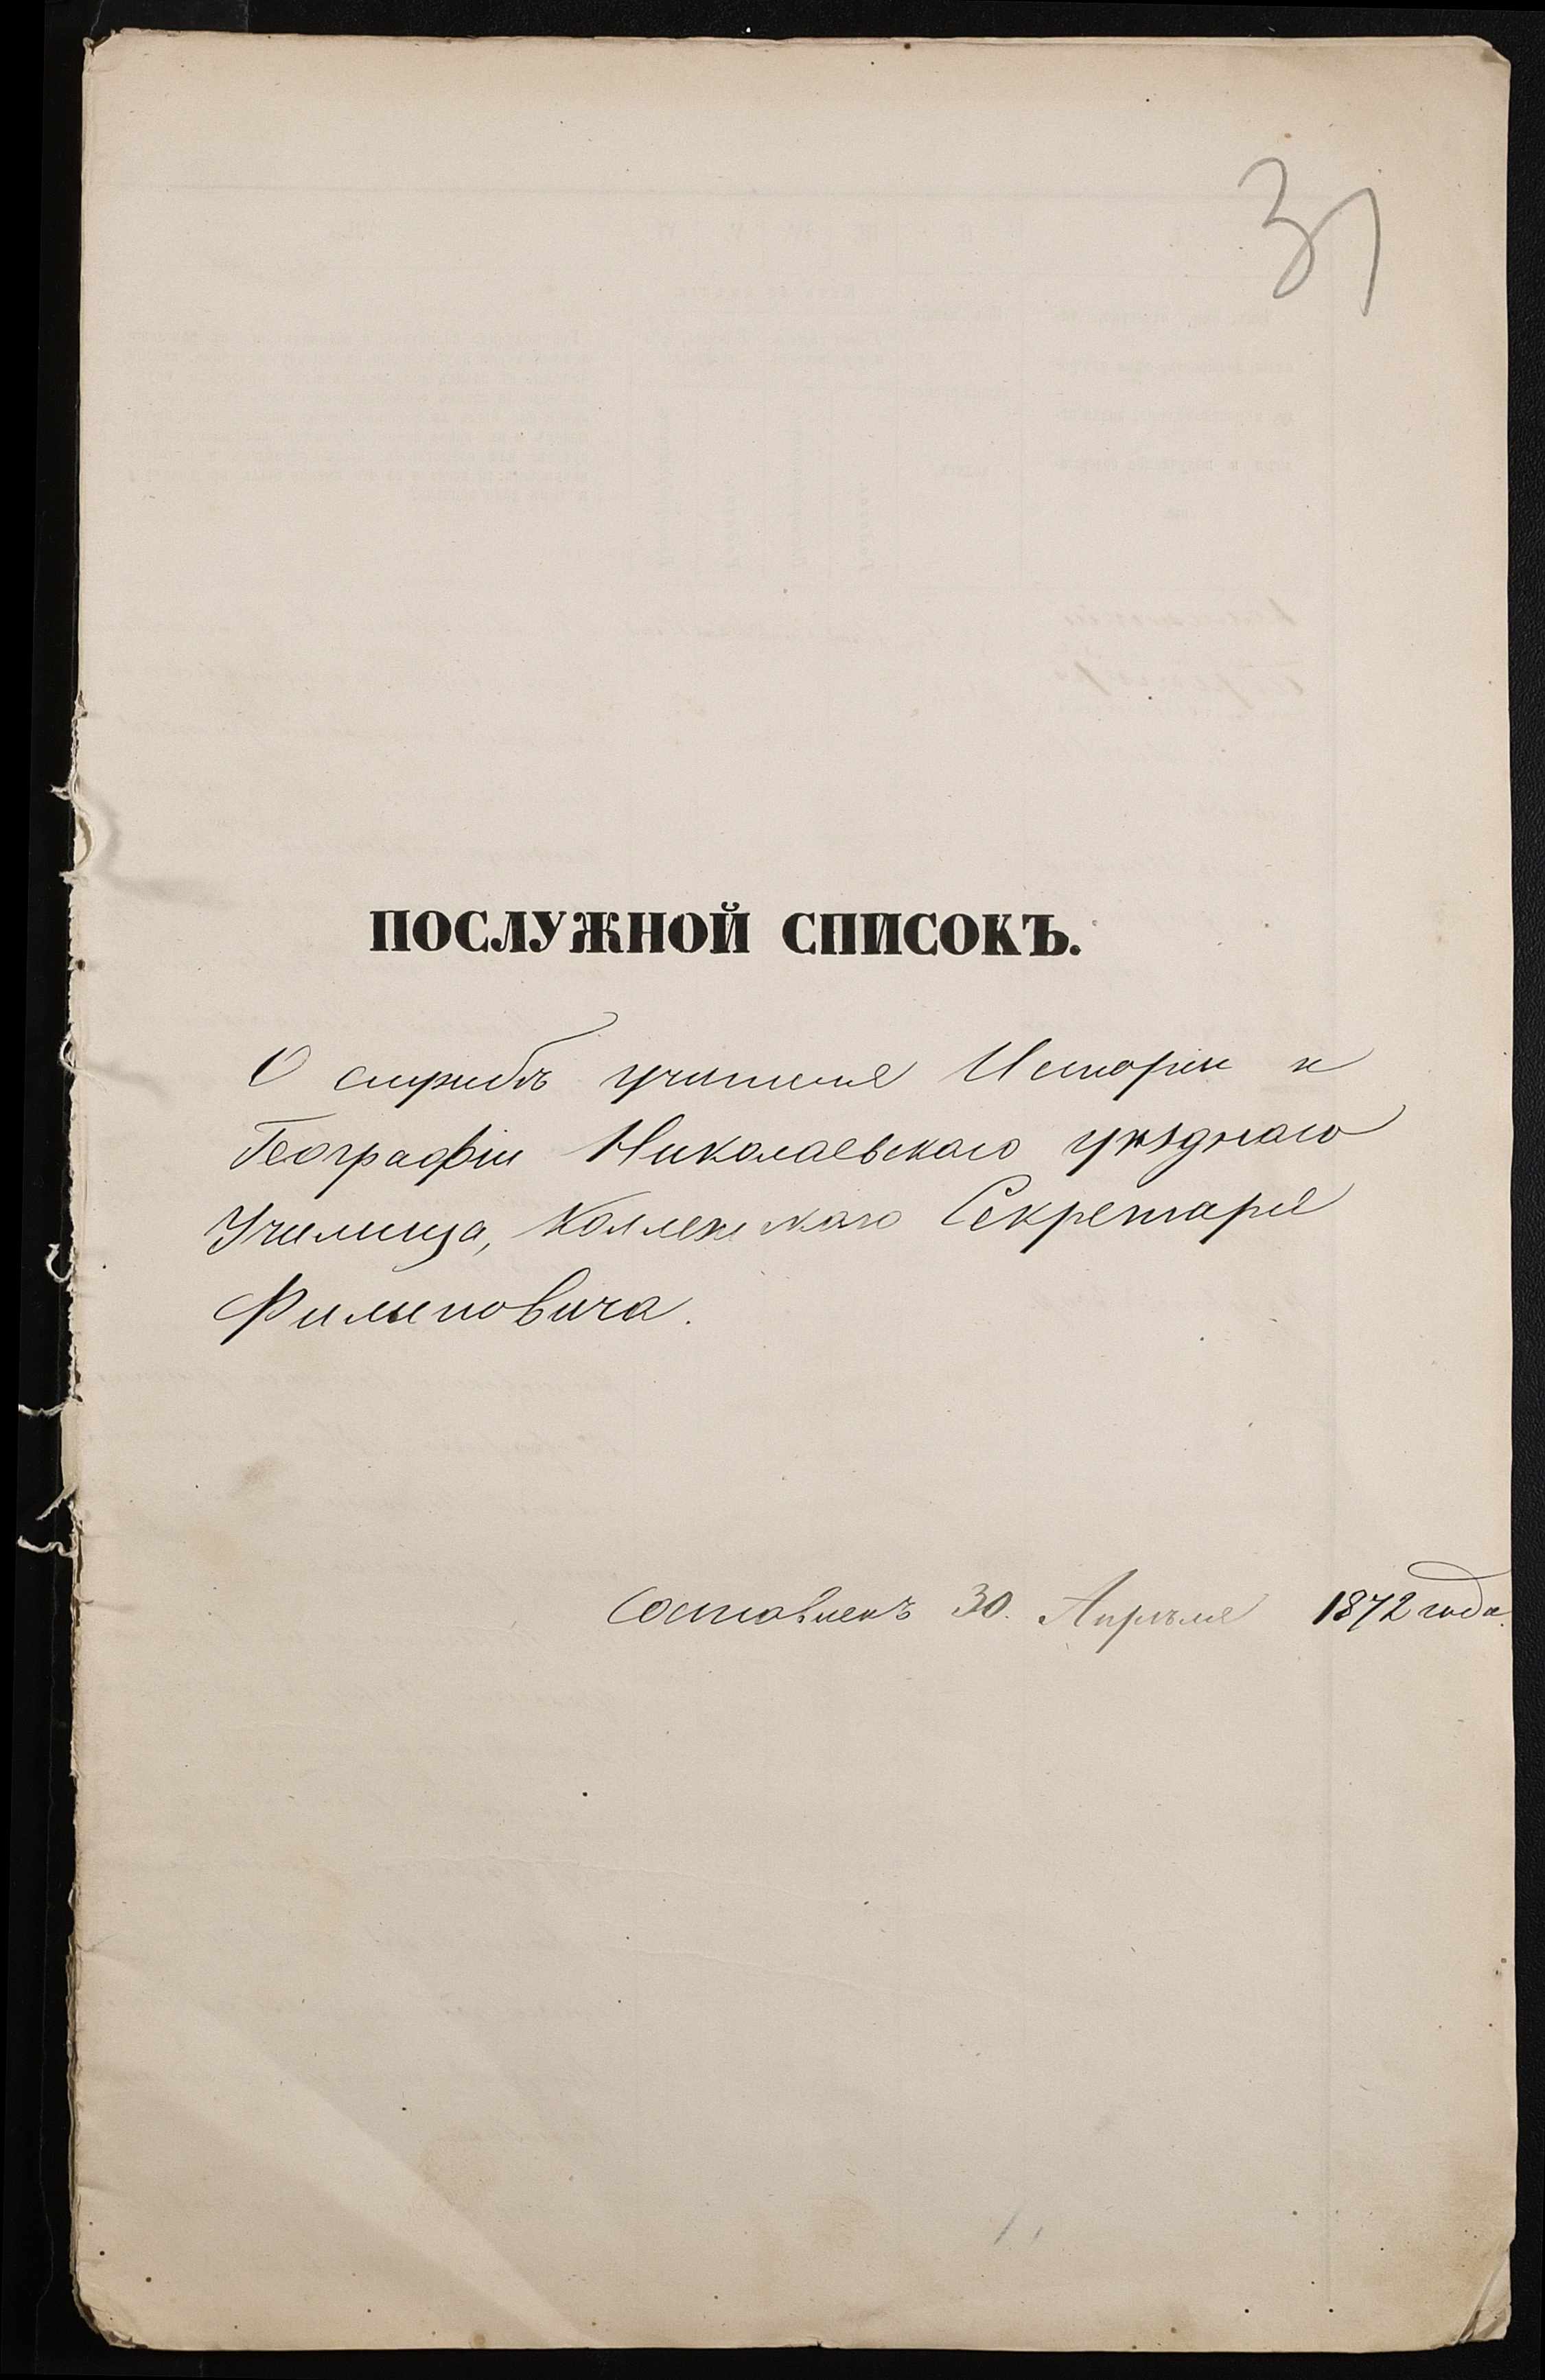 31
ПОСЛУЖНОЙ СПИСОКЪ.
О службѣ учителя Исторіи и
Географіи Николаевскаго уѣзднаго
Училища, Коллежскаго Секретаря
Филиповича.
Составленъ 30. Апрѣля 1872 года.